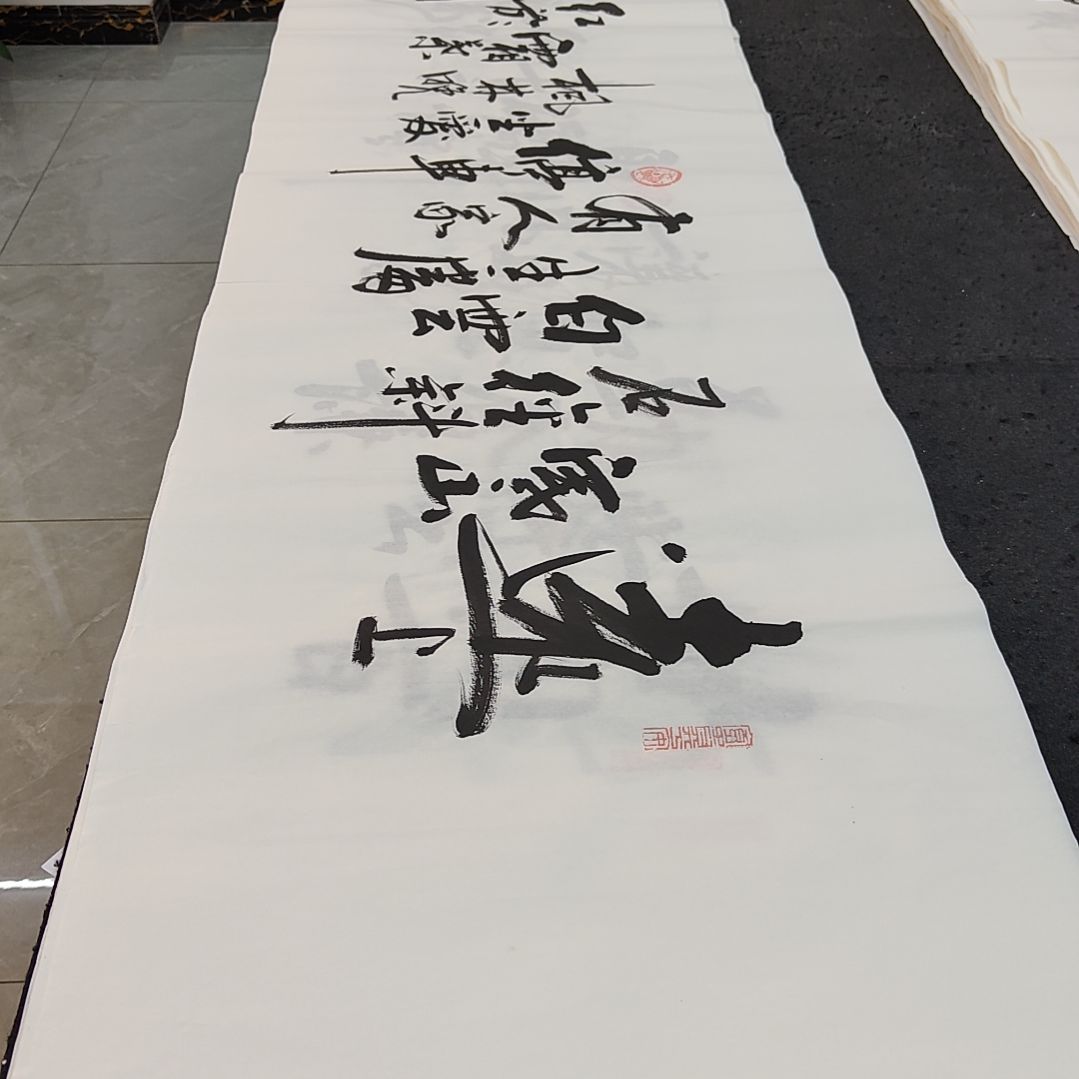 遠上
寒山
石徑斜
白雲
生處
有人家
停車
坐愛
楓林晚
霜葉
紅於